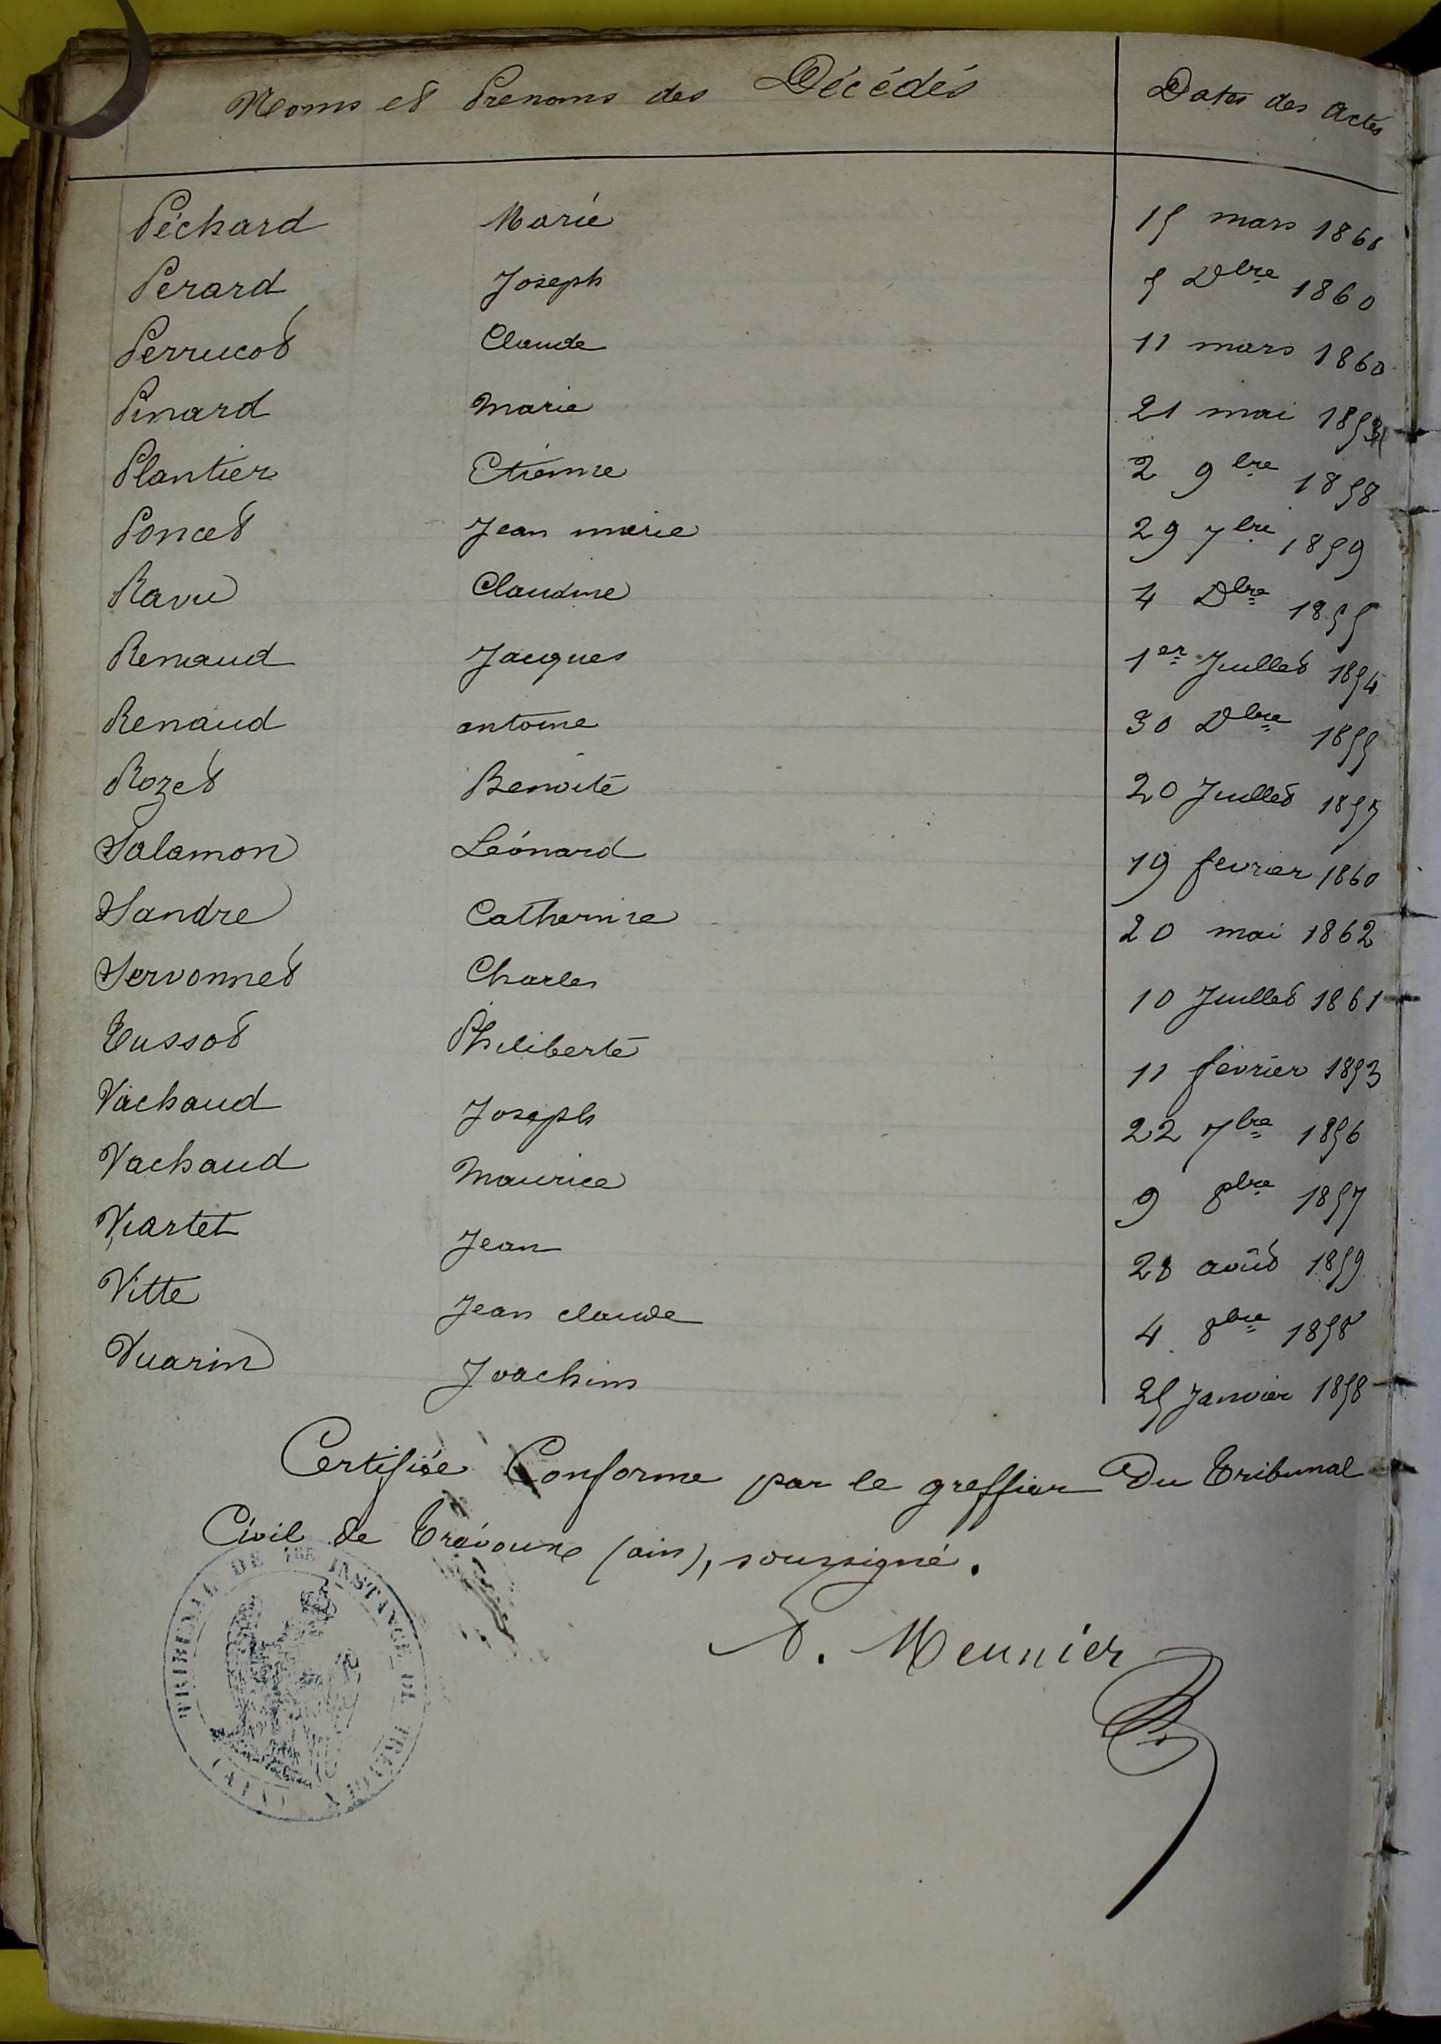 Noms et Prenoms des Décédés Dates des actes
Péchard Marie 15 mars 1860
Perard Joseph 5 Dbre 1860
Perrucot Claude 11 mars 1860
Pinard Marie 21 mai
Plantier Etienne 2 9bre 1858
Poncet Jean marie 29 7bre 1859
Ravu Claudine 4 Dbre 1855
Renaud Jacques 1er Juillet 1854
Renaud antoine 30 Dbre 1855
Rozet Benoite 20 Juillet 1857
Salamon Léonard 19 fevrier 1860
Sandre Catherine 20 mai 1862
Servonnet Charles 10 Juillet 1861
Tussot Philiberte 11 février 1853
Vachaud Joseph 22 7bre 1856
Vachaud Maurice 9 8bre 1857
Viartet Jean 28 août 1859
Vitte Jean claude 4 8bre 1858
Vuarin Joachim 25 Janvier 1858
Certifiée Conforme par le greffier Du Tribunal
Civil de Trévoux (ain), soussigné.
A. Meunier
TRIBUNAL DE 1RE INSTANCE DE TREVOUX (AIN)